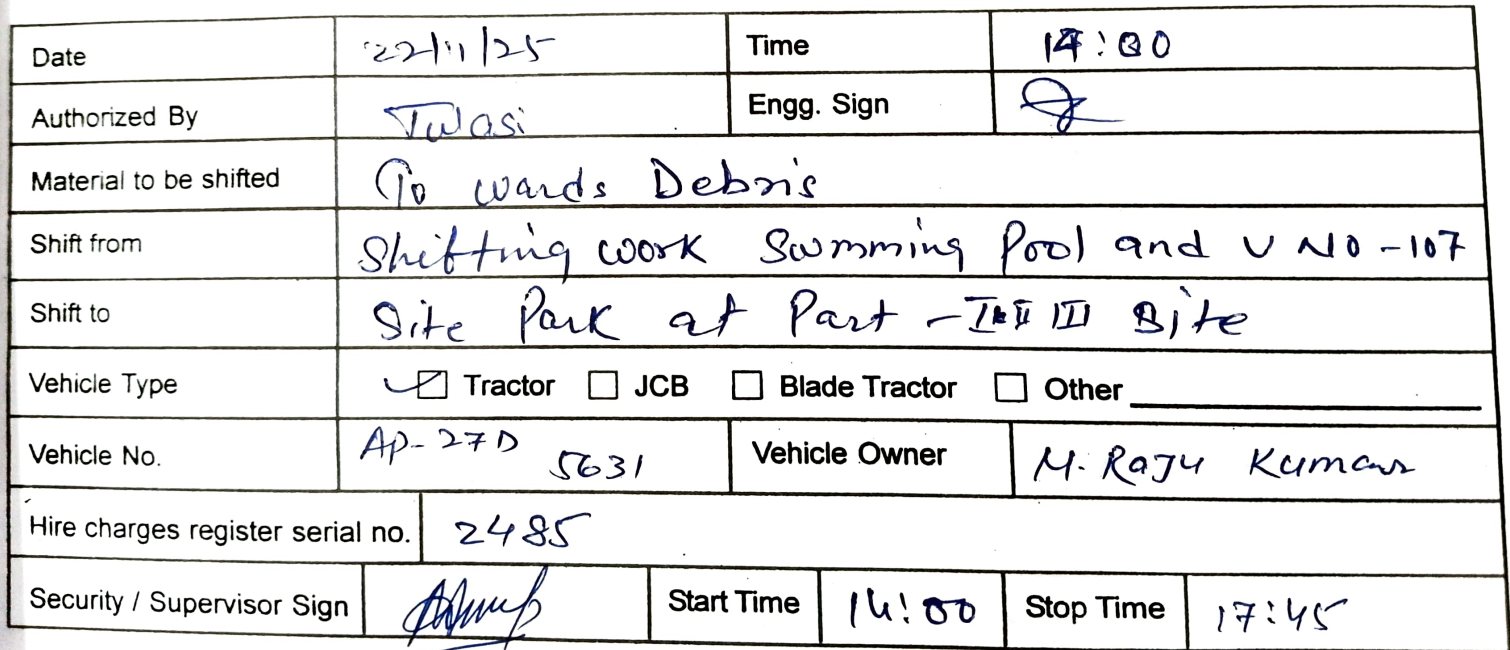 Date 22/11/25 Time 14:00
Authorized By Tulasi Engg. Sign
Material to be shifted To wards Debris
Shift from Shifting work Swmming Pool and V NO-107
Shift to Site Park at Part - III Site
Vehicle Type Tractor JCB Blade Tractor Other
Vehicle No. AP-27D 5631 Vehicle Owner M. Raju Kumar
Hire charges register serial no. 2485
Security / Supervisor Sign Start Time 14:00 Stop Time 17:45